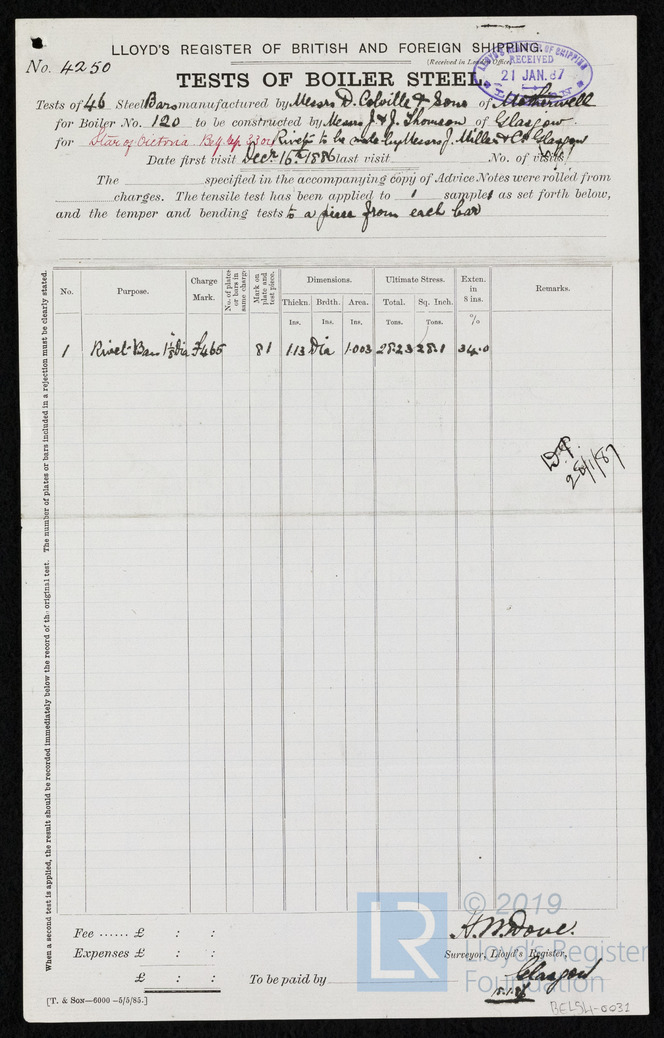 LLOYD'S REGISTER OF BRITISH AND FOREIGN SHIPPING.
No. 4250
(Received in London Office)
RECEIVED
21 JAN. 87
TESTS OF BOILER STEEL
Tests of 46 Steel Bars manufactured by Messrs D. Colville & Sons of Motherwell
for Boiler No. 120 to be constructed by Messrs J. & J. Thomson of Glasgow.
for Star of Victoria. Rivets to be made by Messrs J. Miller & Co Glasgow
Date first visit Decr 16th 1886 last visit No. of visits
The specified in the accompanying copy of Advice Notes were rolled from
charges. The tensile test has been applied to 1 samples as set forth below,
and the temper and bending tests to a piece from each bar
No. Purpose. Charge Mark. No. of plates or bars in same charge Mark on plate and test piece. Dimensions. Ultimate Stress. Exten. in 8 ins. Remarks.
Thickn. Brdth. Area. Total. Sq. Inch.
Ins. Ins. Ins. Tons. Tons. %
1 Rivet Bars 1 1/8" Dia F465 81 1.13 Dia 1.003 28.23 28.1 34.0
28/1/87
When a second test is applied, the result should be recorded immediately below the record of the original test. The number of plates or bars included in a rejection must be clearly stated.
Fee ...... £ : :
Expenses £ : :
£ : :
To be paid by
H. W. Dove.
Surveyor, Lloyd's Register,
Glasgow
[T. & SON—6000 —5/5/85.]
LR
© 2019
Lloyd's Register
Foundation
BEL54-0031